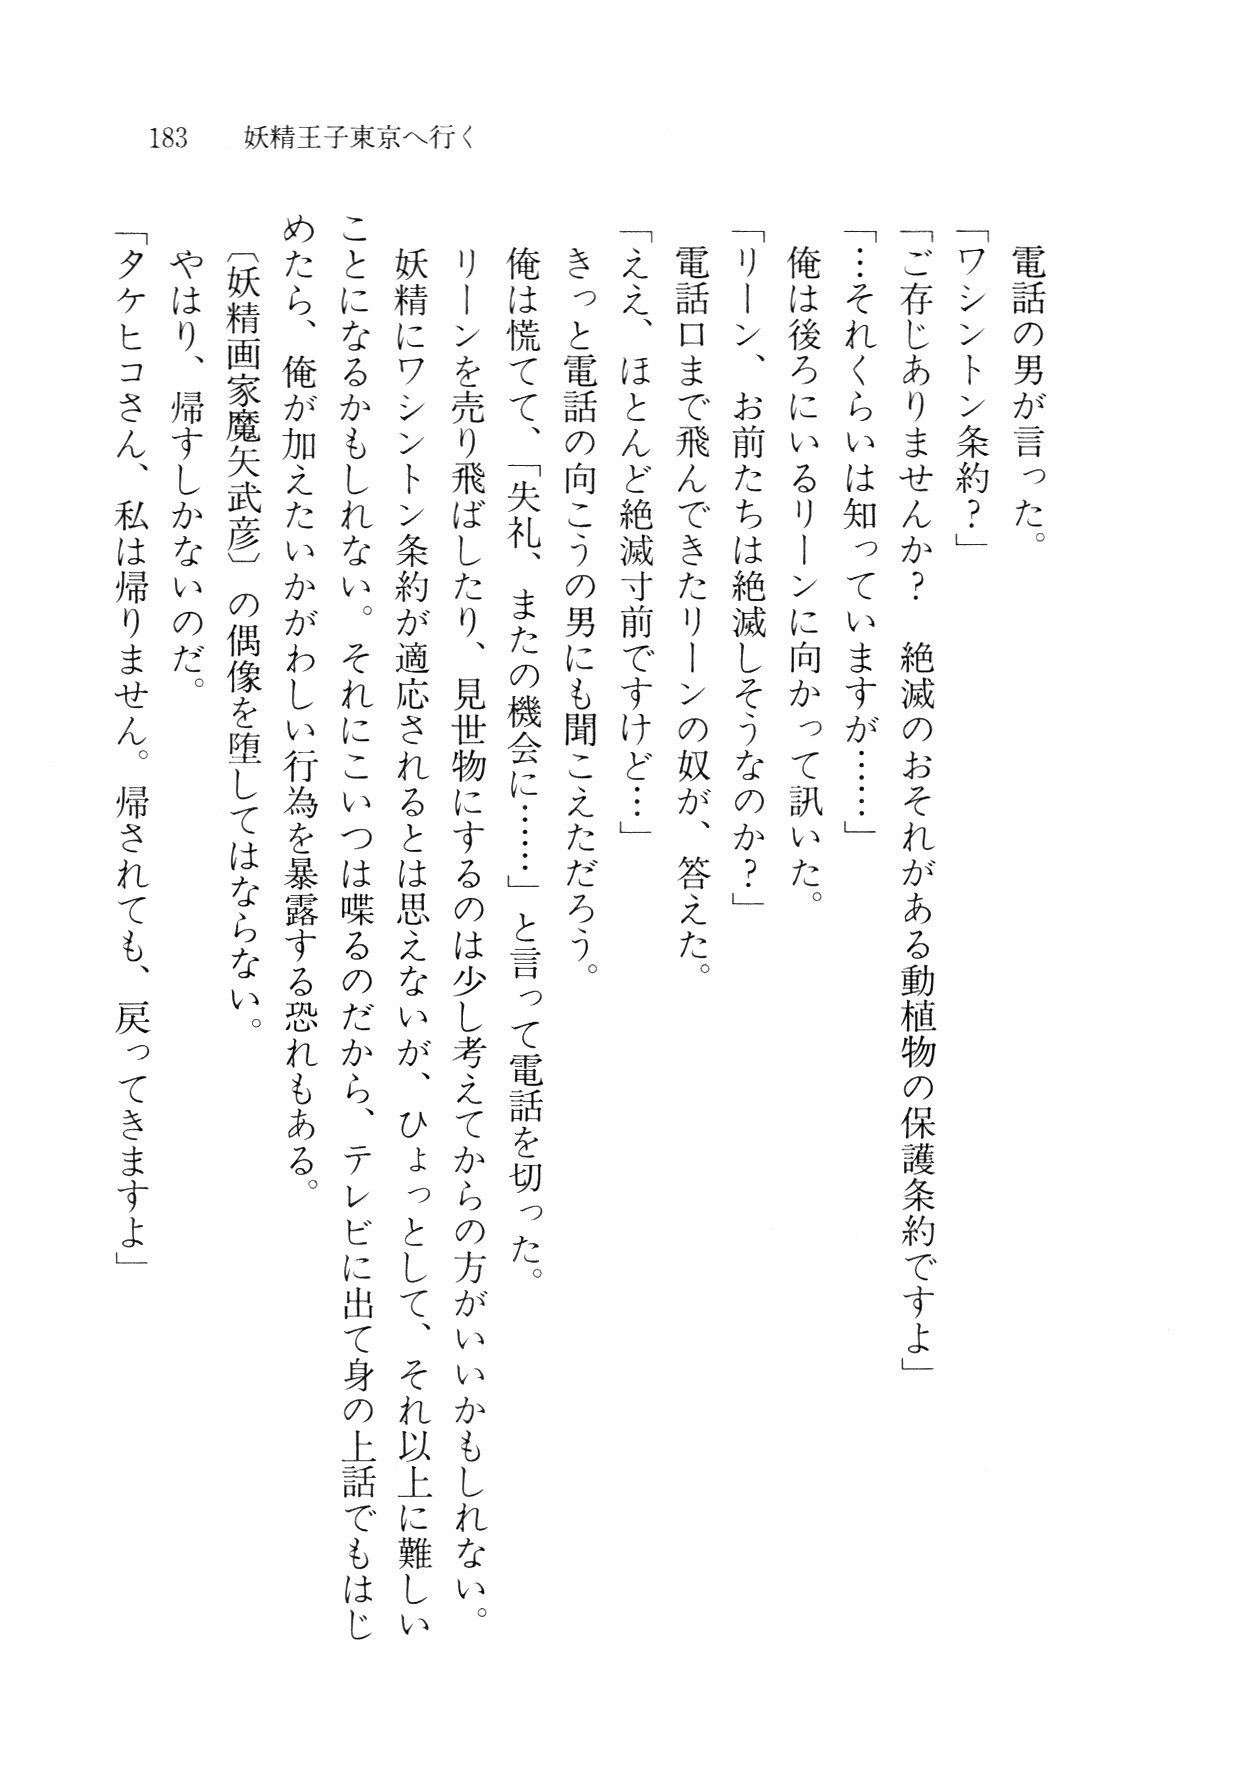 183　妖精王子東京へ行く
電話の男が言った。
「ワシントン条約？」
「ご存じありませんか？　絶滅のおそれがある動植物の保護条約ですよ」
「…それくらいは知っていますが……」
俺は後ろにいるリーンに向かって訊いた。
「リーン、お前たちは絶滅しそうなのか？」
電話口まで飛んできたリーンの奴が、答えた。
「ええ、ほとんど絶滅寸前ですけど…」
きっと電話の向こうの男にも聞こえただろう。
俺は慌てて、「失礼、またの機会に……」と言って電話を切った。
リーンを売り飛ばしたり、見世物にするのは少し考えてからの方がいいかもしれない。
妖精にワシントン条約が適応されるとは思えないが、ひょっとして、それ以上に難しい
ことになるかもしれない。それにこいつは喋るのだから、テレビに出て身の上話でもはじ
めたら、俺が加えたいかがわしい行為を暴露する恐れもある。
〔妖精画家魔矢武彦〕の偶像を堕してはならない。
やはり、帰すしかないのだ。
「タケヒコさん、私は帰りません。帰されても、戻ってきますよ」